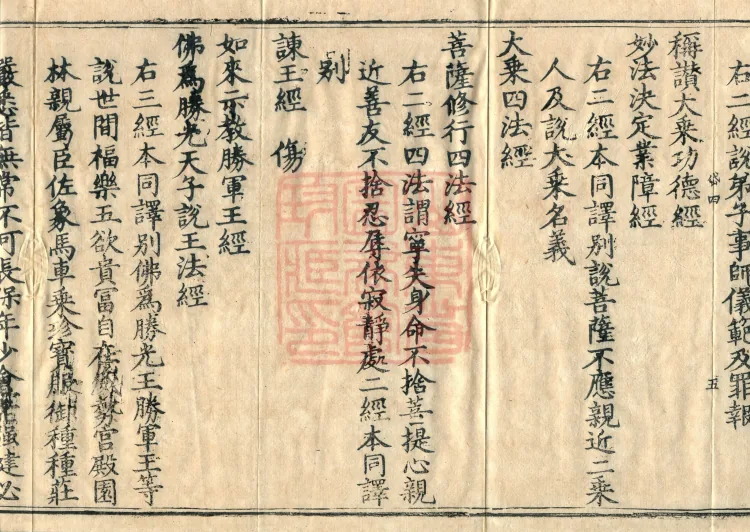 右二經說弟子事師儀範及罪報
稱讚大乗功德經
妙法決定業障經
右二經本同譯別說菩薩不應親近二乗
人及說大乗名義
大乗四法經
菩薩修行四法經
右二經四法謂寧失身命不捨菩提心親
近善友不捨忍辱依寂靜處二經本同譯
別
諫王經 傷
如來示教勝軍王經
佛爲勝光天子說王法經
右三經本同譯別佛爲勝光王勝軍王等
說世間福樂五欲貴冨自在威勢宮殿園
林親屬臣佐象馬車乗珍寶服御種種莊
嚴悉皆無常不可長保年少強健必
五